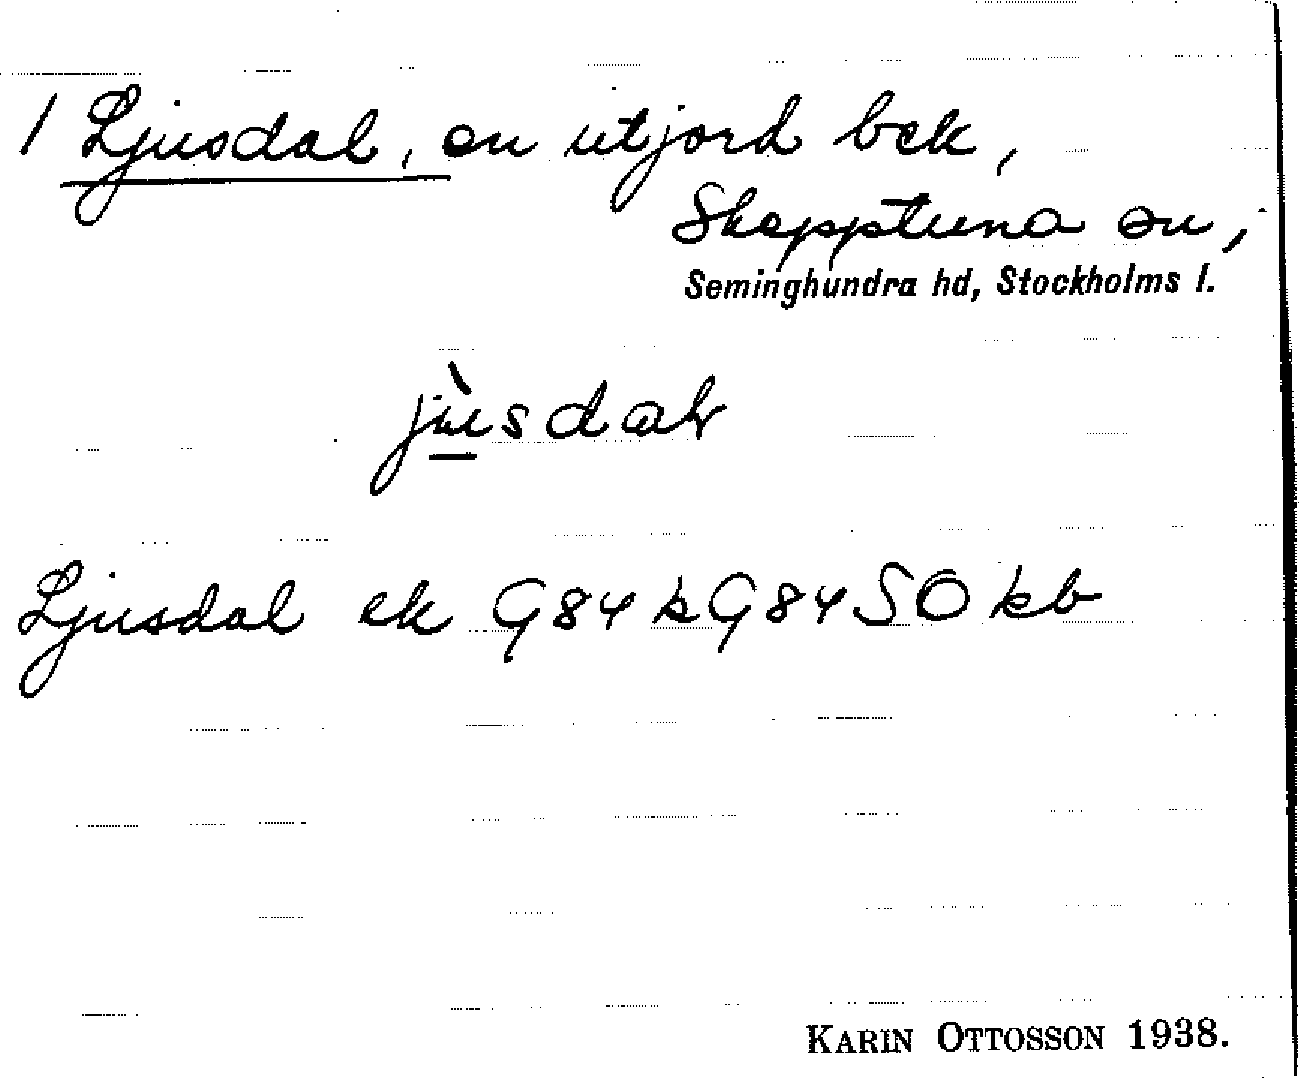 1 Ljusdal, en utjord bek,
Skepptuna sn,
Seminghundra hd, Stockholms l.
jùsdaɫ
Ljusdal ek G84 k G84 SO kb
KARIN OTTOSSON 1938.